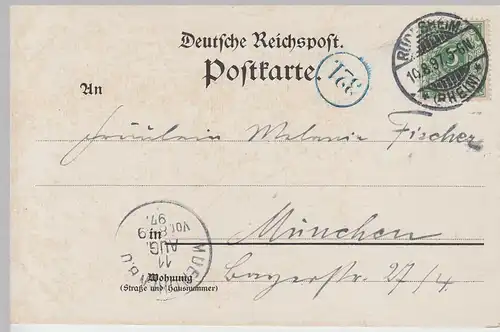 Deutsche Reichspost.
Postkarte.
An
Fräulein Melanie Fischer
in
München
Wohnung
(Straße und Hausnummer)
Bayerstr. 27/4
RÜDESHEIM
10.8.97.5-6N
* (RHEIN) *
321
11
AUG.
97.